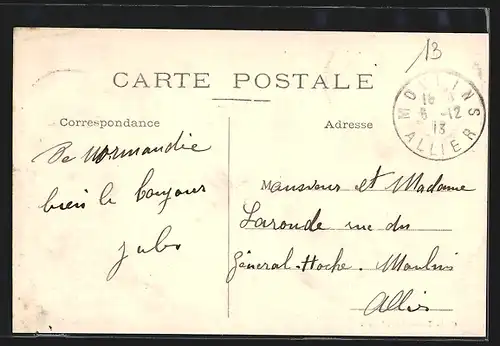 13
CARTE POSTALE
MOULINS
16
6 -12
13
ALLIER
Correspondance
Adresse
De Normandie
bien le bonjour
Jules
Monsieur et Madame
Laronde rue du
Général-Hoche. Moulins
Allier